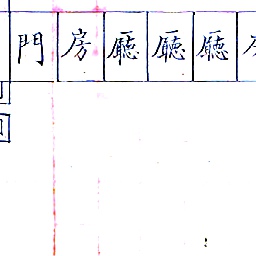 門房廳廳廳